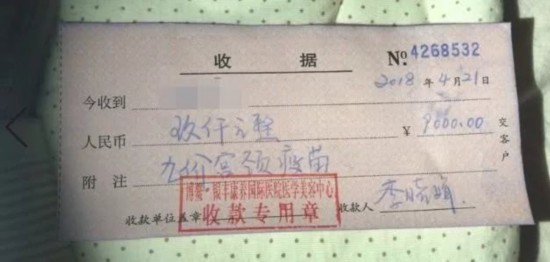 收据
№ 4268532
2018 年 4 月 21 日
今收到
人民币 玖仟元整 ¥ 9000.00
附注 九价宫颈疫苗
交客户
博鳌银丰康养国际医院医学美容中心
收款专用章
收款单位盖章 收款人 李晓